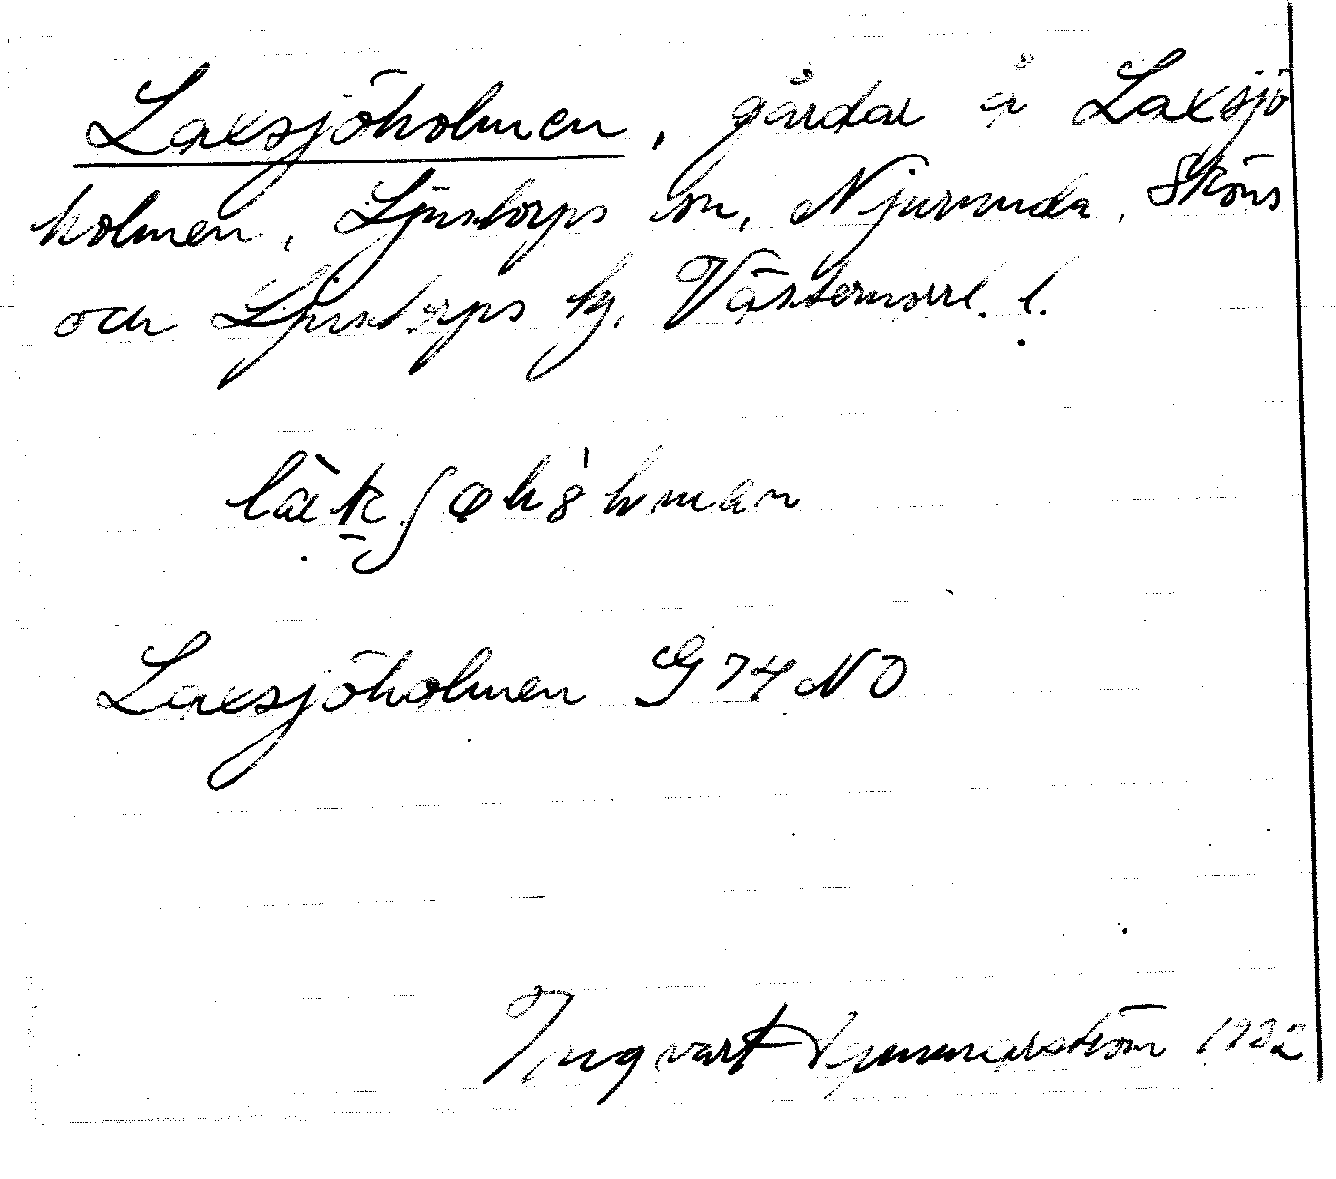 Laxsjöholmen, gårdar å Laxsjö
holmen, Ljustorps sn, Njurunda, Sköns
och Ljustorps tg, Västernorrl. l.
Laxsjöholmen G 74 NO
Ingvart 1932